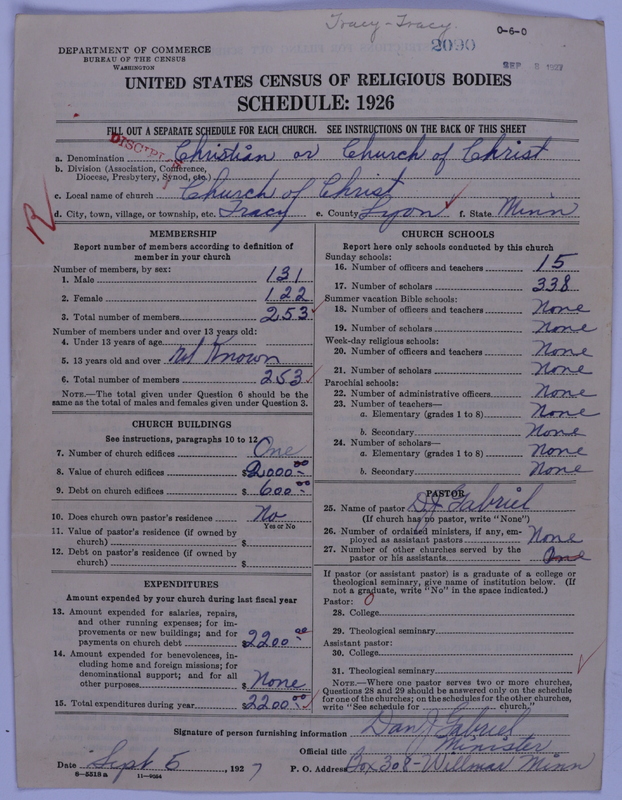 Tracy-Tracy.
0-6-0
2090
SEP 8 1927
DEPARTMENT OF COMMERCE
BUREAU OF THE CENSUS
WASHINGTON
UNITED STATES CENSUS OF RELIGIOUS BODIES
SCHEDULE: 1926
FILL OUT A SEPARATE SCHEDULE FOR EACH CHURCH. SEE INSTRUCTIONS ON THE BACK OF THIS SHEET
a. Denomination Christian or Church of Christ
b. Division (Association, Conference, Diocese, Presbytery, Synod, etc.)
c. Local name of church Church of Christ
d. City, town, village, or township, etc. Tracy e. County Lyon f. State Minn
R
MEMBERSHIP
Report number of members according to definition of
member in your church
Number of members, by sex:
1. Male 131
2. Female 122
3. Total number of members 253
Number of members under and over 13 years old:
4. Under 13 years of age
5. 13 years old and over not Known
6. Total number of members 253
NOTE.—The total given under Question 6 should be the
same as the total of males and females given under Question 3.
CHURCH BUILDINGS
See instructions, paragraphs 10 to 12
7. Number of church edifices One
8. Value of church edifices $2000.00
9. Debt on church edifices $600.00
10. Does church own pastor's residence No
Yes or No
11. Value of pastor's residence (if owned by
church) $
12. Debt on pastor's residence (if owned by
church) $
EXPENDITURES
Amount expended by your church during last fiscal year
13. Amount expended for salaries, repairs,
and other running expenses; for im-
provements or new buildings; and for
payments on church debt $2200.00
14. Amount expended for benevolences, in-
cluding home and foreign missions; for
denominational support; and for all
other purposes $None
15. Total expenditures during year $2200.00
CHURCH SCHOOLS
Report here only schools conducted by this church
Sunday schools:
16. Number of officers and teachers 15
17. Number of scholars 338
Summer vacation Bible schools:
18. Number of officers and teachers None
19. Number of scholars None
Week-day religious schools:
20. Number of officers and teachers None
21. Number of scholars None
Parochial schools:
22. Number of administrative officers None
23. Number of teachers—
a. Elementary (grades 1 to 8) None
b. Secondary None
24. Number of scholars—
a. Elementary (grades 1 to 8) None
b. Secondary None
PASTOR
25. Name of pastor D J Gabriel
(If church has no pastor, write "None")
26. Number of ordained ministers, if any, em-
ployed as assistant pastors None
27. Number of other churches served by the
pastor or his assistants One
If pastor (or assistant pastor) is a graduate of a college or
theological seminary, give name of institution below. (If
not a graduate, write "No" in the space indicated.)
Pastor: 0
28. College
29. Theological seminary
Assistant pastor:
30. College
31. Theological seminary
NOTE.—Where one pastor serves two or more churches,
Questions 28 and 29 should be answered only on the schedule
for one of the churches; on the schedules for the other churches,
write "See schedule for church."
Signature of person furnishing information Dan J Gabriel
Official title Minister
Date Sept 5, 1927 P. O. Address Box 308-Willmar Minn
8-5518a 11-9054